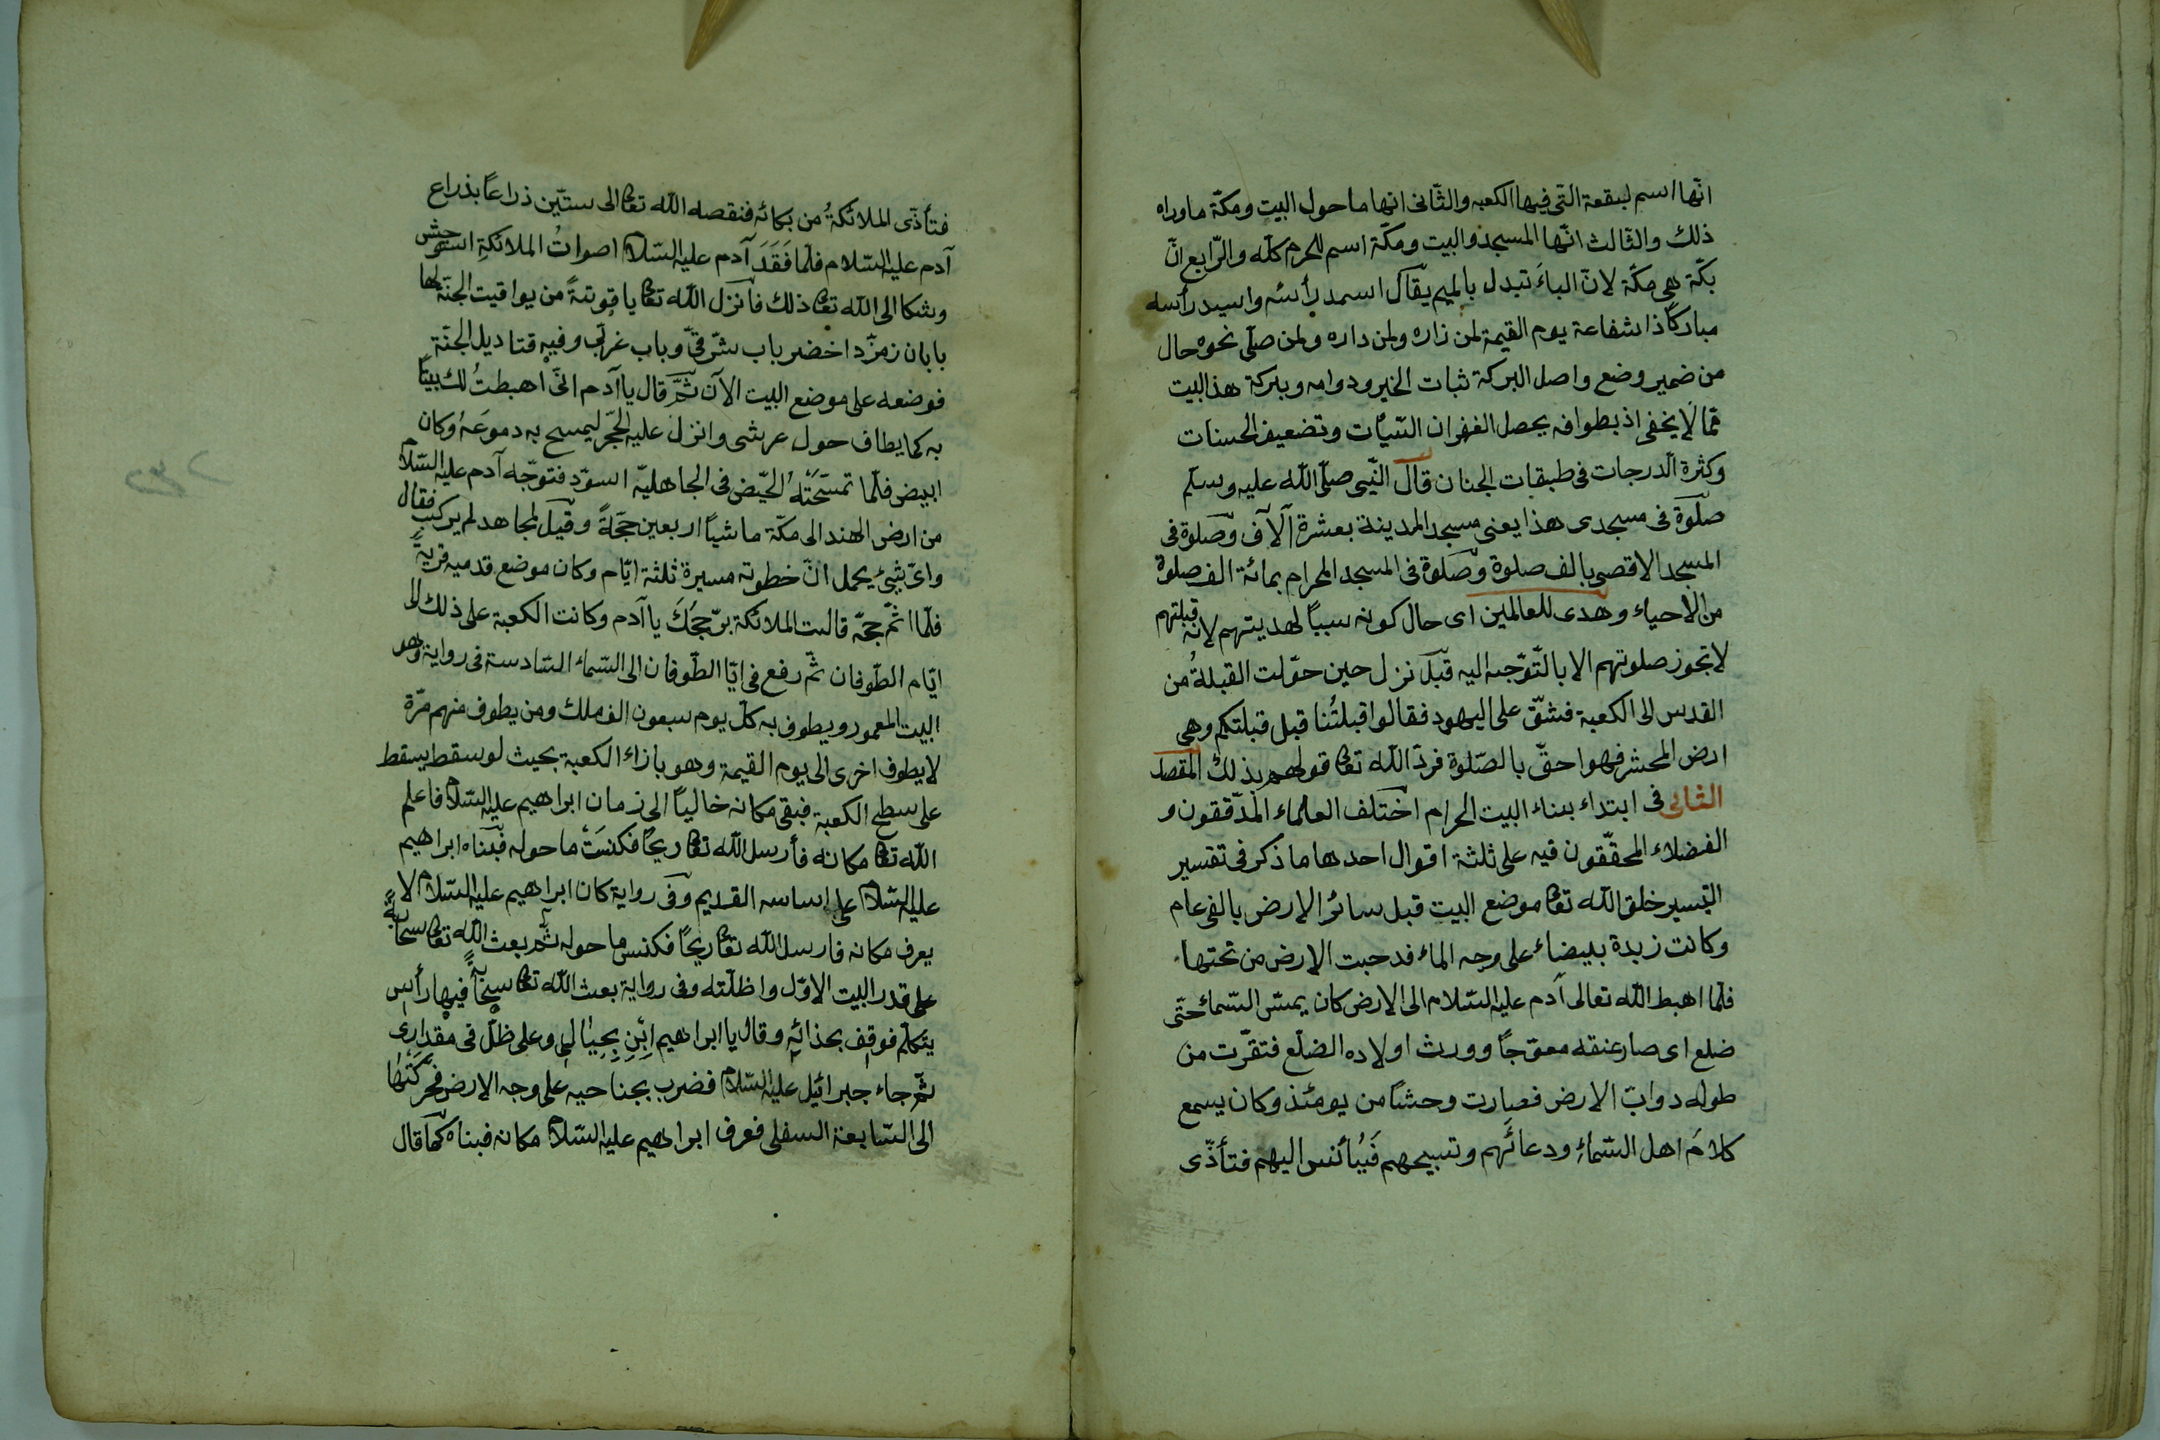 انّها اسم لبقعة الّتى فيها الكعبه والثّانى انها ما حول البيت ومكّة ماوراه
ذلك والثالث انّها المسجد والبيت ومكّة اسم للحرم كلّه والرّابع انّ
بكّة هى مكّة لانّ الباءَ تبدل بالميم يقال اسمد رأسه واسبد رأسه
مباركاً ذا شفاعة يوم القيمة لمن زاره ولمن داره ولمن صلّى نحوه حال
من ضمير وضع واصل البركة ثبات الخير ودوامه وبركة هذ البيت
ممّا لا يخفى اذ بطوافه يحصل الغفران السّيّات وتضعيف الحسنات
وكثرة الدّرجات فى طبقات الجنان قال النّبى صلّى الله عليه وسلّم
صلوة فى مسجدى هذا يعنى مسجد المدينة بعشرة آلآف وصلوة فى
المسجد الاقصى بالف صلوة وصلوة فى المسجد الحرام بمائة الف صلوة
من الاحياء وهدى للعالمين اى حال كونه سبباً لهديتهم لانه قبلتهم
لا تجوز صلوتهم الا بالتّوجّه اليه قيل نزل حين حوّلت القبلةُ من
القدس الى الكعبة فشقّ على اليهود فقالوا قبلتُنا قبل قبلتكم وهى
ارض المحشر فهوا حقّ بالصّلوة فردّ الله تعا قولهم بذلك المقصد
الثانى فى ابتداء بناء البيت الحرام اختلف العلماء المدقّقون و
الفضلاء المحقّقون فيه على ثلثة اقوال احدها ما ذكر فى تفسير
التيسير خلق الله تعا موضع البيت قبل سائر الارض بالفى عام
وكانت زبدة بيضاء على وجه الماء فدحيت الارض من تحتها
فلمّا اهبط الله تعالى آدم عليه السّلام الى الارض كان يمسّ السّماء حتّى
ضلع اى صار عنقه معوّجاً وورث اولاده الضلع فتقرّت من
طوله دوابّ الارض فصارت وحشاً من يومئذ وكان يسمع
كلامَ اهل السّماءِ ودعائَهم وتسبيحهم فَيَأنس اليهم فتأذّى
فتأذّى الملائكةُ من بكائه فنقصه الله تعا الى ستّين ذراعاً بذراع
آدم عليه السّلام فلمّا فَقَدَ آدم عليه السّلام اصواتُ الملائكةِ استوحش
وشكا الى الله تعا ذلك فانزل الله تعا ياقوتةً من يواقيت الجنّة لها
بابان زمرّد اخضر باب شرقىّ وباب غربّى وفيه قناديل الجنّة
فوضعه على موضع البيت الآن ثمّ قال يا آدم انّى اهبطتُ لك بيتاً
به كما يطاف حول عرشى وانزل عليه الحجَر ليمسح به دموعَهُ وكان
ابيض فلمّا تمسّحَتْهُ الحيّض فى الجاهليّة اسودّ فتوجّه آدم عليه السّلام
من ارض الهند الى مكّة ماشياً اربعين حجّةً وقيل لمجاهد لم يركب فقال
واىّ شئ يحمل انّ خطوته مسيرة ثلثة ايّام وكان موضع قدميه قريةً
فلمّا اتّم حجّه قالت الملائكة برّ حجُّكَ يا آدم وكانت الكعبة على ذلك الى
ايّام الطّوفان ثمّ رفع فى ايّا الطّوفان الى السّماء السّادسة فى رواية وهو
البيت المعمور ويطوف به كلّ يوم سبعون الف ملك ومن يطوف منهم مرّة
لا يطوف اخرى الى يوم القيمة وهو بازاء الكعبة بحيث لو سقط يسقط
على سطح الكعبة فبقى مكانه خالياً الى زمان ابراهيم عليه السّلام فاعلم
الله تعا مكانه فأرسل الله تعا ريحاً فكنسَتْ ما حوله فبناه ابراهيم
عليه السّلام على اساسه القديم وفى رواية كان ابراهيم عليه السّلام لا
يعرف مكانه فارسل الله تعا ريحاً فكنس ما حوله ثمّ بعث الله تعا سحابةً
على قدر البيت الاوّل واظلّته وفى رواية بعث الله تعا سحاباً فيها رأس
يتكلّم فوقف بحذائه وقال يا ابراهيم اِبْنِ بِحِيالى وعلى ظلّ فى مقدارى
ثمّ جاء جبرائيل عليه السّلام فضرب بجناحيه على وجه الارض فحرّكَتْها
الى السّابعة السفلى فعرف ابراهيم عليه السّلام مكانه فبناه كما قال